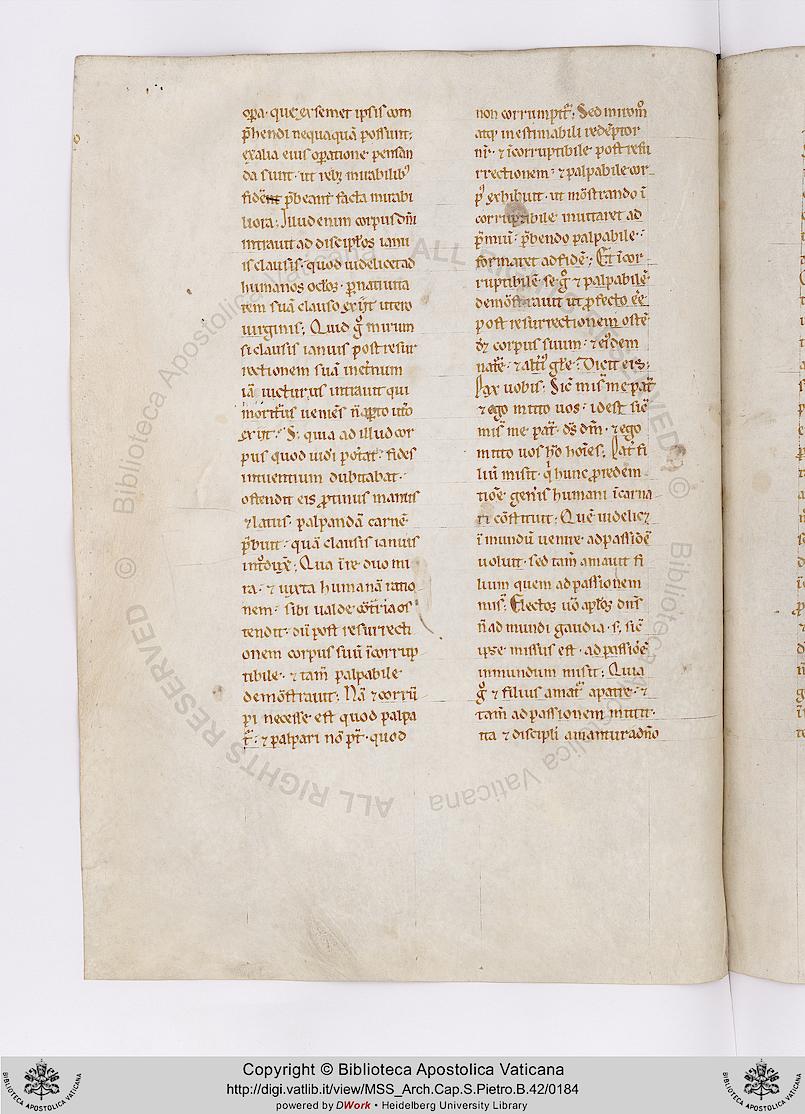 opa · que ex semet ipsis com
p̄hendi nequaquā possunt;
ex alia eius opatione pensan
da sunt · ut reb; mirabilib'
fidē p̄beant facta mirabi
liora; Illud enim corpus dn̄i
intravit ad discip̄los ianu
is clausis · quod videlicet ad
humanos oc̄los · p̄ nativita
tem suā clauso exijt utero
virginis; Quid g̊ mirum
si clausis ianuis post resur
rectionem suā in et̄num
iā victurus intravit qui
moritur̄s veniēs n̄ apto ut̄o
exijt? S; quia ad illud cor
pus quod uidi poterat · fides
intuentium dubitabat ·
ostendit eis protinus manus
& latus · palpandā carnē
p̄buit · quā clausis ianuis
int̊duxē; Qua in re duo mi
ra · & iuxta humanā ratio
nem · sibi valde cōtraria os
tendit · dū post resurrecti
onem corpus suū īcorrup
tibile · & tam̄ palpabile
demōstravit; Nā & corrū
pi necesse est quod palpa
t̄ · & palpari nō pōt · quod
non corrumpit̄; Sed miro m̊
atq; inestimabili redēptor
nr̄ · & īcorruptibile post resu
rrectionem · & palpabile cor
p' exhibuit · ut mōstrando ī
corruptibile invitaret ad
p̄miū · p̄bendo palpabile ·
formaret ad fidē; Et īcor
ruptibilē se g̊ & palpabilē
demōstravit ut profecto eē
post resurrectionem ostē
d& corpus suum · & eiusdem
nat̄e · & alt̄i' gl̄e · Dicit eis;
Pax vobis; Sic̄ mis̄ me pat̄
& ego mitto vos · id est sic̄
mis̄ me pat̄ · ds̄ dm̄ · & ego
mitto vos hō hoīes; Pat̄ fi
liū misit · q̄ hunc p redem
tiōē gen̄is humani īcarna
ri cōstituit; Quē videlic&
ī mundū venire · ad passiōē
voluit · sed tam̄ amavit fi
lium quem ad passionem
mis̄; Electos v̊o apl̄os dn̄s
n̄ ad mundi gaudia · s; sic̄
ipse missus est · ad passiōēs
in mundum misit; Quia
g̊ & filius amat̄ a patre · &
tam̄ ad passionem mittit̄ ·
ita & discipli amantur a dn̄o
Copyright © Biblioteca Apostolica Vaticana
http://digi.vatlib.it/view/MSS_Arch.Cap.S.Pietro.B.42/0184
powered by DWork • Heidelberg University Library